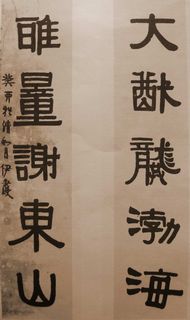 大猷龔渤海
雅量謝東山